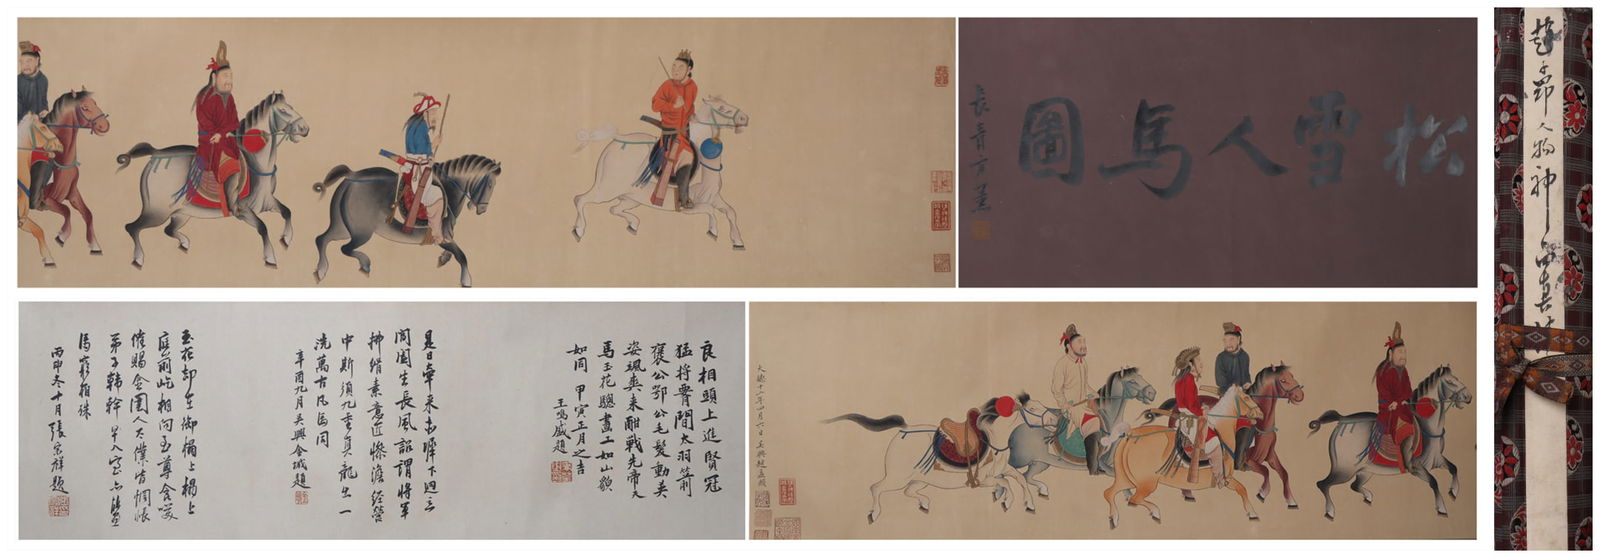 松雪人馬圖
長青方薰
趙子昂人物神品真跡
良相頭上進賢冠
猛將腰間大羽箭
褒公鄂公毛髮動英
姿颯爽來酣戰先帝天
馬玉花驄畫工如山貌
如同 甲寅正月之吉
王鳴盛題
是日牽來赤墀下迥立
閶闔生長風詔謂將軍
拂絹素意匠慘澹經營
中斯須九重真龍出一
洗萬古凡馬同
辛酉九月吳興金城題
玉花却在御榻上榻上
庭前屹相向至尊含笑
催賜金圉人太僕皆惆悵
弟子韓幹早入室亦能畫
馬窮相殊
丙申冬十月張宗祥題
大德十一年四月六日吳興趙孟頫